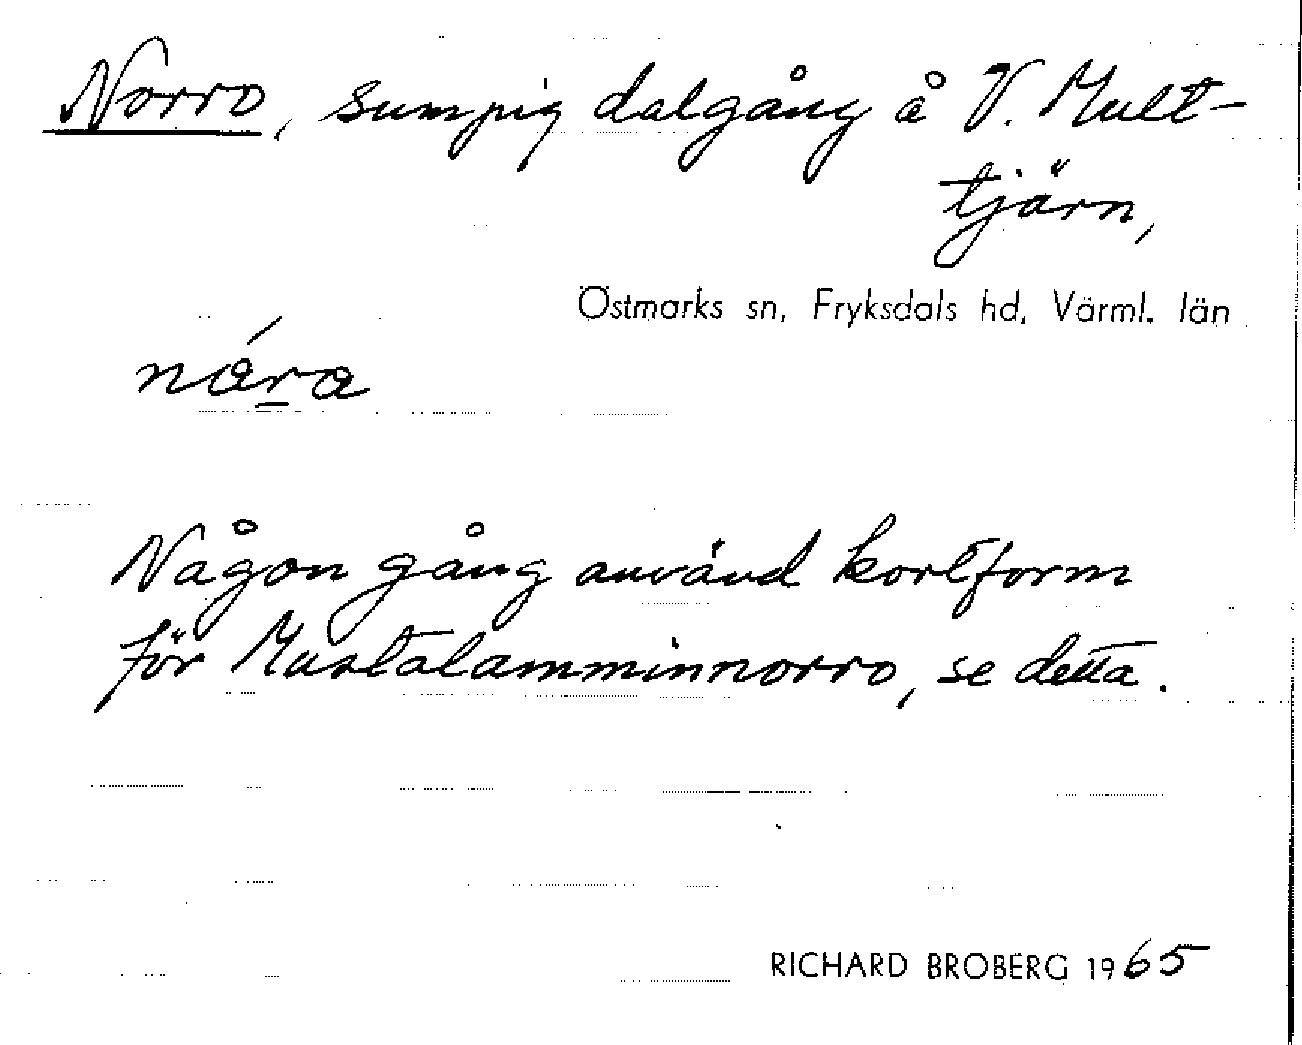 Norro, sumpig dalgång å V. Mult-
tjärn,
Östmarks sn, Fryksdals hd, Värml. län
nára
Någon gång använd kortform
för Mustalamminnorro, se detta.
RICHARD BROBERG 1965